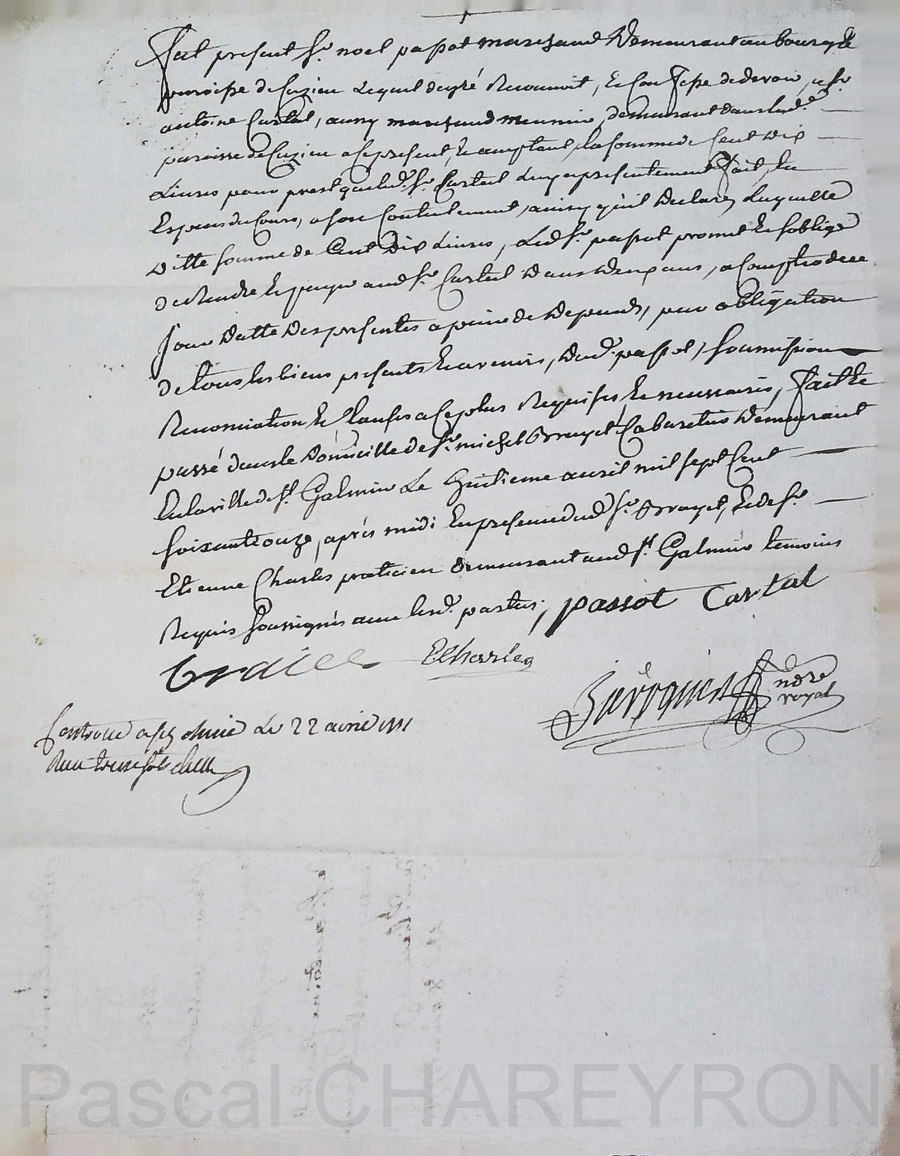 fut present Sr. noel passot marchand demeurant au bourg et
paroisse de Cuzieu lequel de gré Reconnoit, et Confesse de devoir, a Sr
antoine Cartal, aussy marchand meunier, demeurant dans lade.
paroisse de Cuzieu a ce present, et acceptant, la somme de Cent Dix
Livres pour prest que led. Sr. Cartal luy a presentement fait, en
Especes du Cours, a son Contentement, ainsy qu'il Declare, Laquelle
ditte somme de Cent Dix Livres, Led. Sr. passot promet et s'oblige
de Rendre et payer aud. Sr. Cartal Dans Deux ans, a Compter de ce
Jour Datte Des presentes a peine de Depends, par obligation
de tous ses biens presents et avenirs, dud. passot, soumissions
Renonciation et Clauses a ce plus Requises et necessaires, fait et
passé dans le Domicille de Sr. michel Brayet Cabaretier Demeurant
en la ville de St. Galmier Le huitieme avril mil sept Cent
soixante onze, après midi En presence dud. Sr. Brayet, et de Sr.
Etienne Charles praticien demeurant aud. St. Galmier temoins
Requis soussignés avec lesd. parties, passot Cartal
E Charles
ndre
royal
Controllé a St. Galmier Le 22 avril 1771
Pascal CHAREYRON